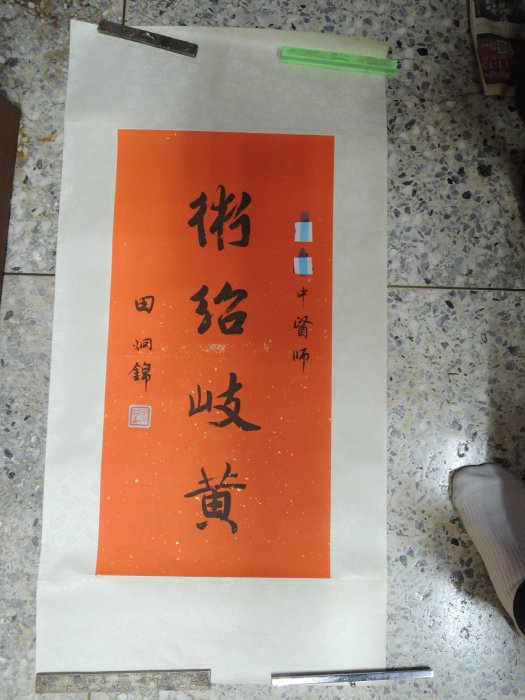 中醫師
術紹岐黄
田炯錦